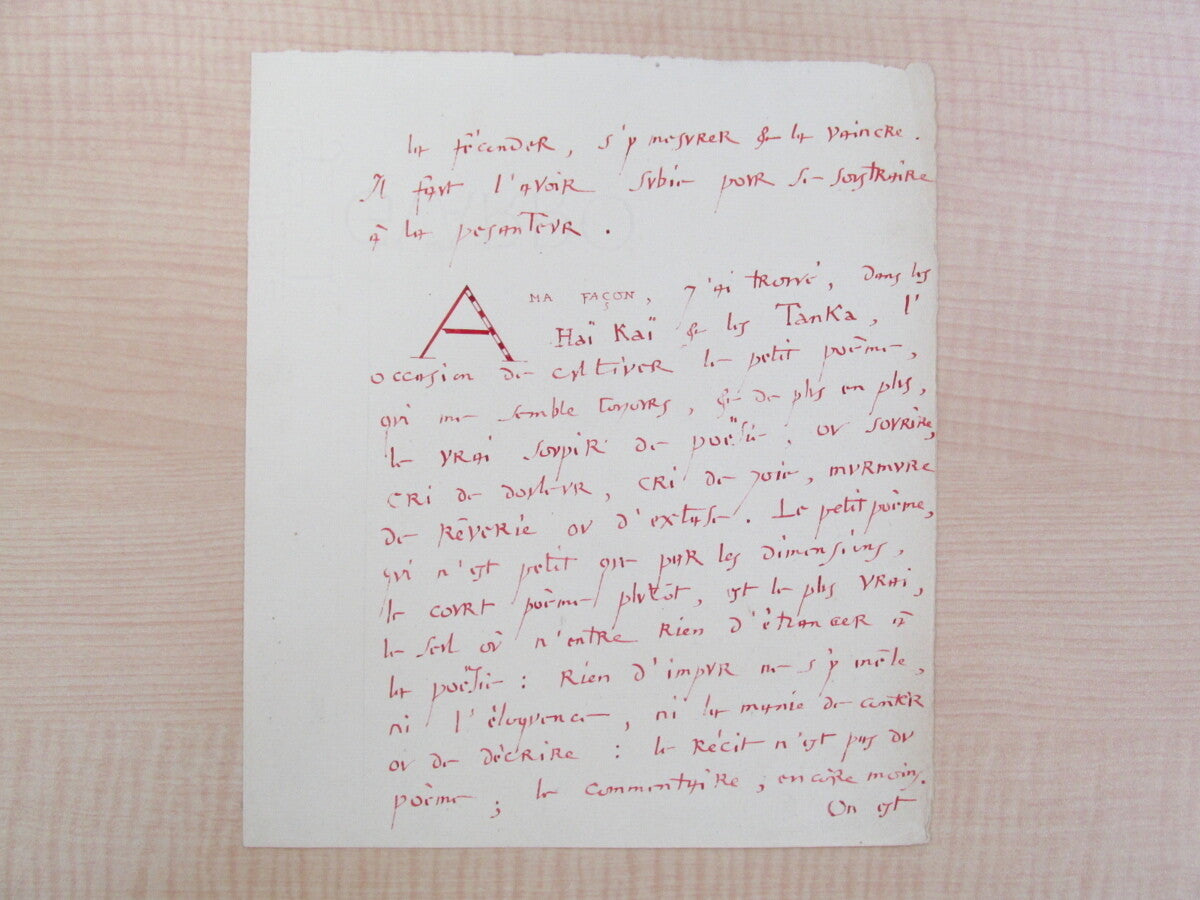 la féconder, s'y mesurer & la vaincre.
Il faut l'avoir subie pour se soustraire
à la pesanteur.
A MA FAÇON, j'ai trouvé, dans les
Haï Kaï & les Tanka, l'
occasion de cultiver le petit poème,
qui me semble toujours, & de plus en plus,
le vrai soupir de poësie. ou sourire,
cri de douleur, cri de joie, murmure
de rêverie ou d'extase. Le petit poème,
qui n'est petit que par les dimensions,
le court poème plutôt, est le plus vrai,
le seul où n'entre rien d'étranger à
la poësie : Rien d'impur ne s'y mêle,
ni l'éloquence, ni la manie de conter
ou de décrire : le récit n'est pas du
poème ; le commentaire, encore moins.
On est